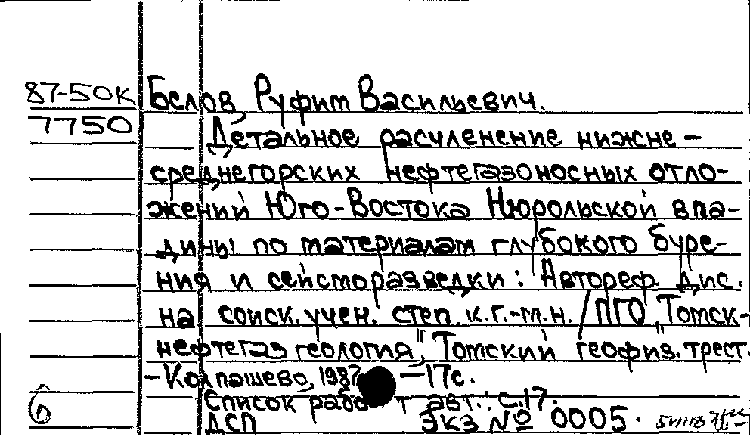 87-50к Белов, Руфим Васильевич.
7750 Детальное расчленение нижне-
среднегорских нефтегазоносных отло-
жений Юго-Востока Нюрольской впа-
дины по материалам глубокого буре-
ния и сейсморазведки: Автореф. дис.
на соиск. учен. степ. к.г.-м.н. / ПГО "Томск-
нефтегазгеология", Томский геофиз. трест.
- Колпашево, 1987 - 17с.
Список работ авт.: с.17.
6 ДСП Экз № 0005.